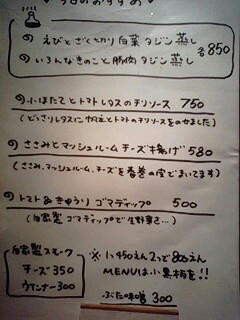 今日のおすすめ
えびとざく切り白菜タジン蒸し
各850
いろんなきのこと豚肉タジン蒸し
小ほたてとトマトレタスのチリソース 750
(どっさりレタスに帆立とトマトのチリソースをのせました)
ささみとマッシュルームチーズ揚げ 580
(ささみ、マッシュルーム、チーズを春巻の皮でまいてます)
トマト&きゅうり ゴマディップ 500
(自家製ゴマディップで生野菜を…)
自家製スモーク
チーズ 350
ウィンナー 300
※1つ450えん 2つで800えん
MENUは小黒板を!!
ぶた味噌 300